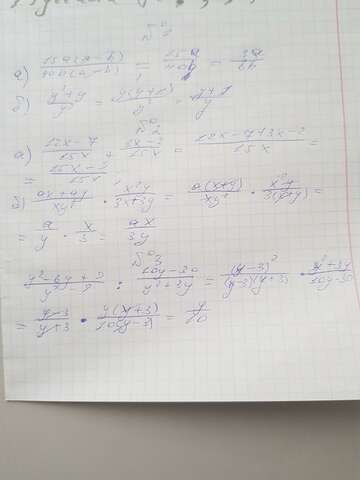 №1
а) 15a(a-b)/40b(a-b) = 15a/40b = 3a/8b
б) y²+y/y² = y(y+1)/y² = y+1/y
№2
а) 12x-7/15x + 3x-2/15x = 12x-7+3x-2/15x =
= 15x-9/15x
б) ax+ay/xy² · x²y/3x+3y = a(x+y)/xy² · x²y/3(x+y) =
= a/y · x/3 = ax/3y
№3
y²-6y+9/y²-9 : 10y-30/y²+3y = (y-3)²/(y-3)(y+3) · y²+3y/10y-30
= y-3/y+3 · y(y+3)/10(y-3) = y/10